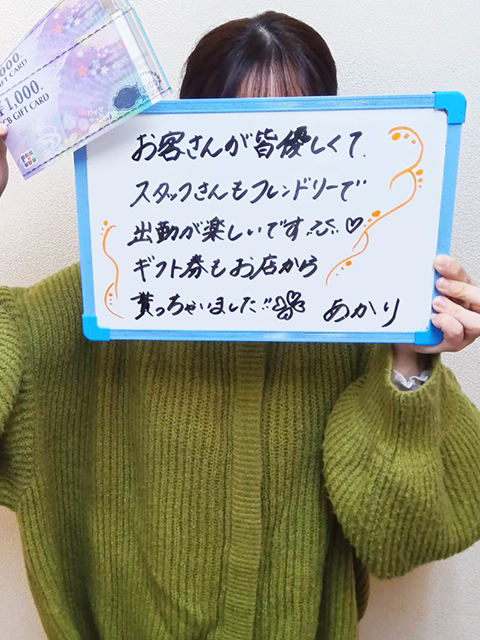 ,000.
GIFT CARD
¥1,000.
CB GIFT CARD
お客さんが皆優しくて.
スタッフさんもフレンドリーで
出勤が楽しいです♡
ギフト券もお店から
貰っちゃいました!!
あかり